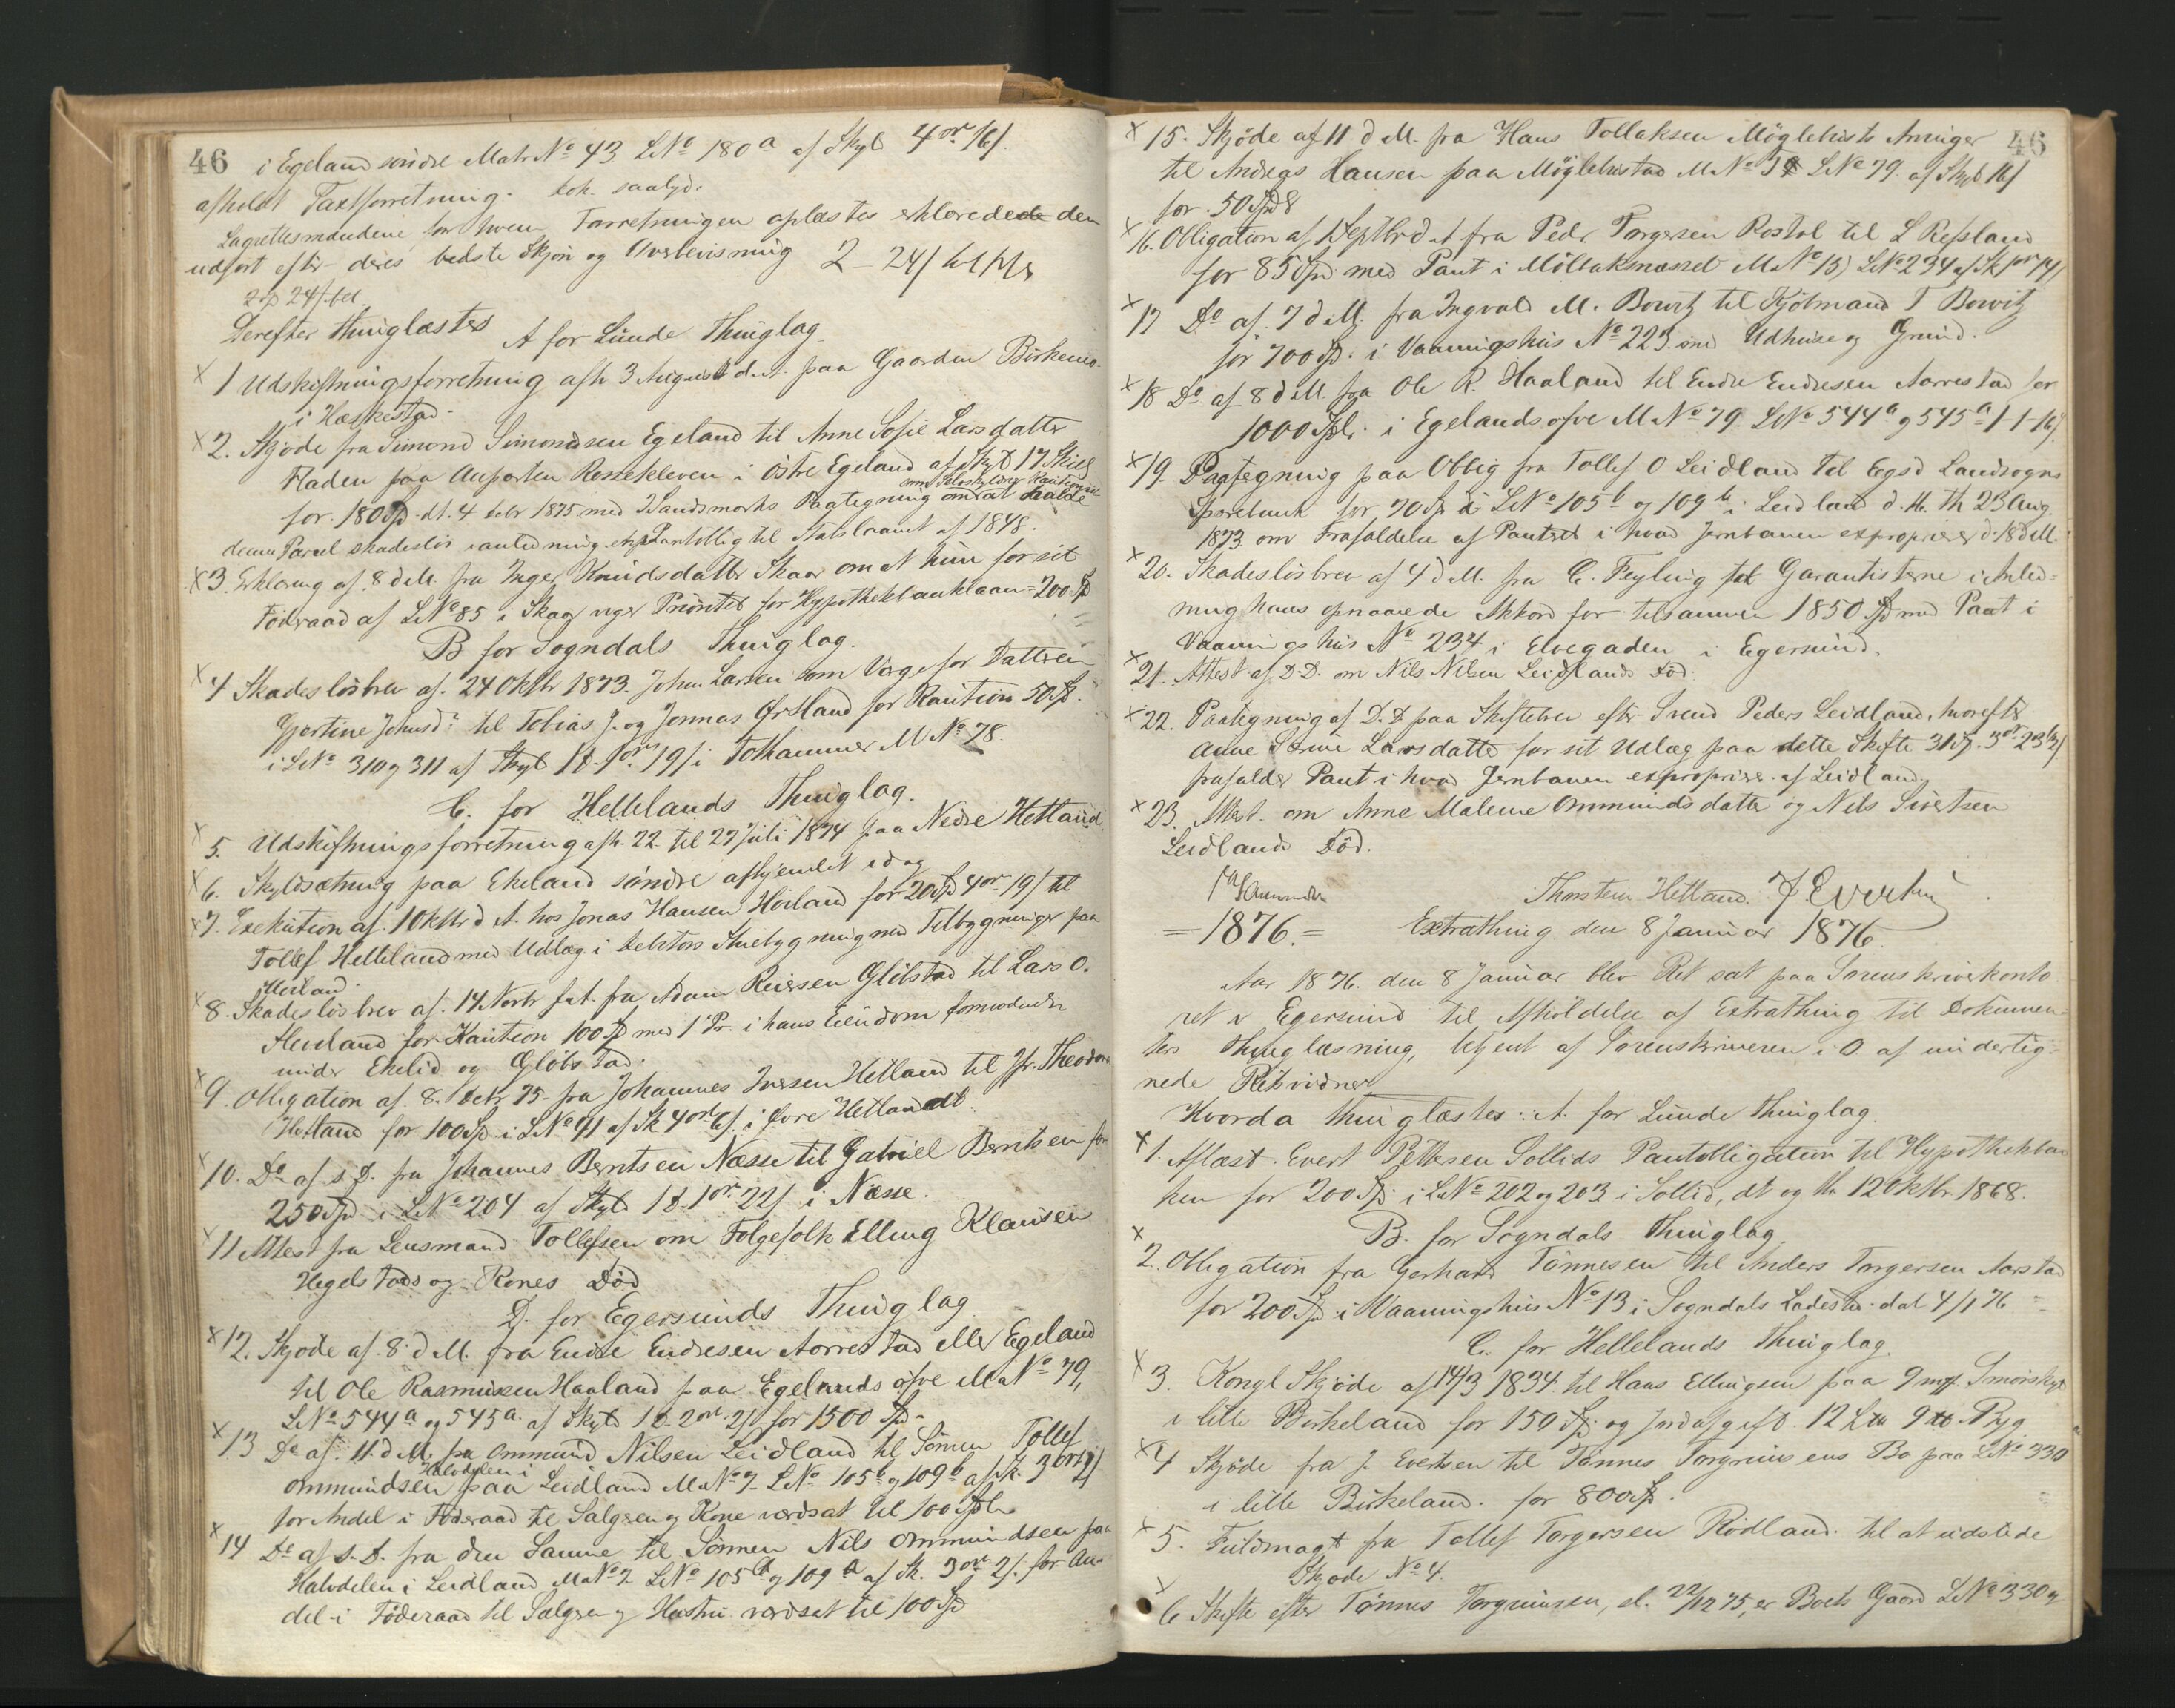 46 i Egeland söndre Matr No 43 LNo 180a af Skyld 4 ort 16/
afholdt Taxtforretning. saalyd.
Lagrettesmændene for hvem Forretningen oplæstes erklærede den
udfört efter deres bedste Skjön og Overbevisning
2 24/
Derefter thinglæstes A for Lunde Thinglag.
x 1 Udskiftningsforretning afh 3 August d. A. paa Gaarden Birkemo
i Heskestad.
x 2. Skjøde fra Simond Simondsen Egeland til Anne Sofie Larsdatter
Fladen paa Anparten Rossekleven i östre Egeland af Skyld 17 Skill
for 180 Spd. dt. 4 1875 med Paategning om at
denne Parcel skadeslös til Statslaanet af 1848.
x 3. Erklæring af 8 d M. fra Inger Knudsdatter Skaar om at hun for sit
Föderaad af LNo 85 i Skaar viger Prioritet for Hypothekbanklaan 200 Spd
B for Sogndals Thinglag.
x 4 Skadeslösbrev af 24 Oktbr 1873. John Larsen som Værge for Datteren
Gjertine Johnsd: til Tobias J. og Jonnas Örsland for Kaution 50 Spd.
i LNo 310 og 311 af Skyld 1d. 1 ort 19/ i Tothammer M No 78.
C. for Hellelands Thinglag.
x 5. Udskiftningsforretning afh. 22 til 27 Juli 1874 paa Nedre Hetland.
x 6. Skyldsætning paa Ekeland söndre afhjemlet idag
x 7. Exekution af 1 Oktbr d A. hos Jonas Hansen Höiland for 20 Spd 4 ort 19/ til
Tollef Helleland med Udlæg i Debitors Stuebygning med Tilbygninger paa
Höiland.
x 8. Skadeslösbrev af 14 Novbr f. A. fra Adam Reiersen Glöbstad til Lars O.
for Kaution 100 Spd med 1 Pr. i hans Eiendom
under Ekelid og Glöbstad.
x 9. Obligation af 8. 75 fra Johannes Iversen Hetland til Theodor
Hetland for 100 Spd i LNo 91 af Sk 4 ort 6/ i övre Hetland.
x 10. Do af s. D. fra Johannes Berntsen Næsse til Gabriel Berntsen for
250 Spd i LNo 204 af Skyld 1d. 1 ort 22/ i Næsse.
x 11 Attest fra Lensmand Tollefsen om Folgefolk Elling Klausen
Hegelstads og Kones Död
D. for Egersunds Thinglag
x 12. Skjøde af 8 d M. fra Endre Endresen Aarrestad eller Egeland
til Ole Rasmussen Haaland paa Egelands öfre M No 79,
LNo 544a og 545a af Skyld 1d. 2 ort 2/ for 1500 Spd.
x 13 Do af 11 d M. fra Ommund Nilsen Leidland til Sönnen Tollef
Ommundsen paa Halvdelen i Leidland M No 7 LNo 105b og 109b af Sk. 3 ort 2/
for Andel i Föderaad til Sælgeren og Kone værdsat til 100 Spdlr.
x 14 Do af s. D. fra den Samme til Sönnen Nils Ommundsen paa
Halvdelen i Leidland M No 7 LNo 105a og 109a af Sk. 3 ort 2/. for An-
del i Föderaad til Sælgeren og Hustru værdsat til 100 Spd
46
x 15. Skjøde af 11 d M. fra Hans Tollaksen Möglehists Arvinger
til Andreas Hansen paa Möglehistad M No LNo 79 af Skyld 16/
for 50 Spd
x 16. Obligation af 1 Septbr d A fra Peder Torgersen Rostöl til L Refsland
for 85 Spd med Pant i Möllaksnæsset M No 15) LNo 234 af Sk 1 ort 14/
x 17 Do af 7 d M. fra Ingvald M. Bowitz til Kjöbmand T Bowitz
for 700 Spd. i Vaaningshus No 223 med Udhuse og Grund.
x 18 Do af 8 d M. fra Ole R. Haaland til Endre Endresen Aarrestad for
1000 Spdlr. i Egelands ofve M No 79. LNo 544a og 545a 1-1-16/
x 19. Paategning paa Oblig fra Tollef O Leidland til Egsd Landsogns
Sparebank for 70 Spd i LNo 105b og 109b i Leidland d. M. Th 23 Aug.
1873 om Frafaldelse af Pantret i hvad Jernbanen exproprierer d. 18 d M.
x 20. Skadeslösbrev af 4 d M. fra C. Feyling til Garantisterne i Anled-
ning hans opnaaede Akkord for tilsammen 1850 Spd med Pant i
Vaaningshus No 234 i Elvegaden i Egersund.
x 21. Attest af D. D. om Nils Nilsen Leidlands Död.
x 22. Paategning af D. D. paa Skiftebrev efter Svend Peders Leidland, hvorefter
Anne Serine Larsdatter for sit Udlæg paa dette Skifte 31 Spd. 3 ort 23
frafalder Pant i hvad Jernbanen exproprierer af Leidland.
x 23. Attest. om Anne Malene Ommundsdatter og Nils Sivertsen
Leidlands Död.
Thorsten Hetland. J Evertsen
= 1876. = Extrathing den 8 Januar 1876.
Aar 1876. den 8 Januar blev Ret sat paa Sorenskriverkonto
ret i Egersund til Afholdelse af Extrathing til Dokumen-
ters Thinglæsning, betjent af Sorenskriveren i O af undertig-
nede Retsvidner
Hvorda thinglæstes: A. for Lunde Thinglag.
x 1. Aflæst. Evert Pettersen Sollids Pantobligation til Hypothekban
ken for 200 Spd. i LNo 202 og 203 i Sollid, dt og th 12 Oktbr 1868.
B. for Sogndals Thinglag.
x 2. Obligation fra Gerhard Tönnesen til Anders Torgersen Aarstad
for 200 Spd i Vaaningshus No 13 i Sogndals Ladested dat 4/1 76
C. for Hellelands Thinglag.
x 3. Kongl Skjøde af 14/3 1834 til Hans Ellingsen paa 9 Smörskyld
i lille Birkeland for 150 Spd. og Jordafgift 12 9
x 4 Skjøde fra J. Evertsen til Tönnes Torgrimsens Bo paa LNo 330
i lille Birkeland. for 800 Spd.
x 5. Fuldmagt fra Tollef Torgersen Rödland til at udstede
Skjøde No 4.
x 6 Skifte efter Tönnes Torgrimsen, sl. 22/12 75, er Boets Gaard LNo 330 og